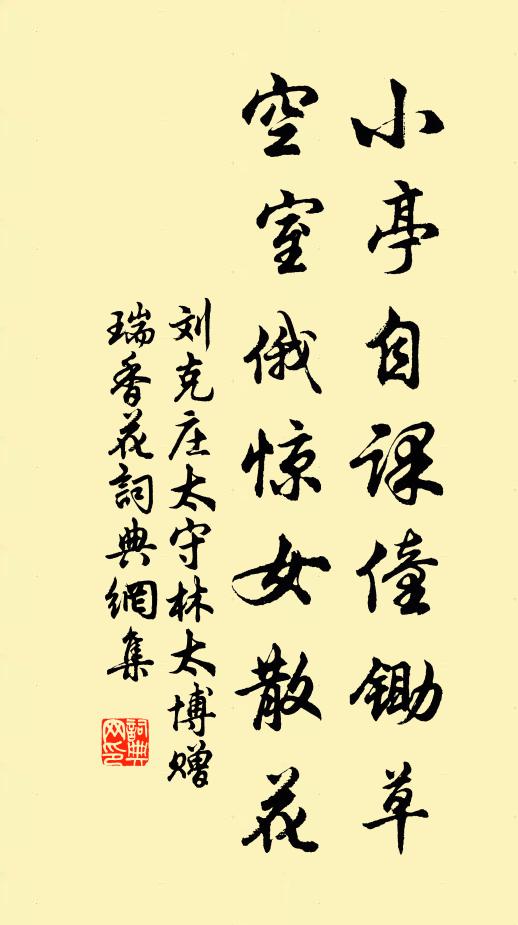 小亭自课僮锄草
空室俄惊女散花
刘克庄太守林太博赠
瑞香花詞典網集
詞典網印